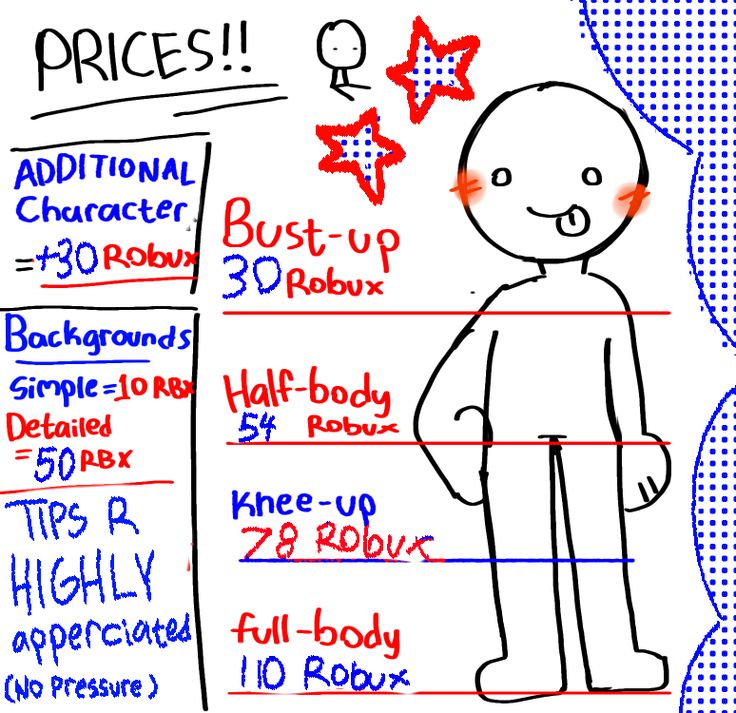 PRICES!!
ADDITIONAL
Character
=+30 Robux
Backgrounds
Simple=10 RBX
Detailed
=50 RBX
TIPS R
HIGHLY
apperciated
(No Pressure)
Bust-up
30 Robux
Half-body
54 Robux
Knee-up
78 Robux
full-body
110 Robux